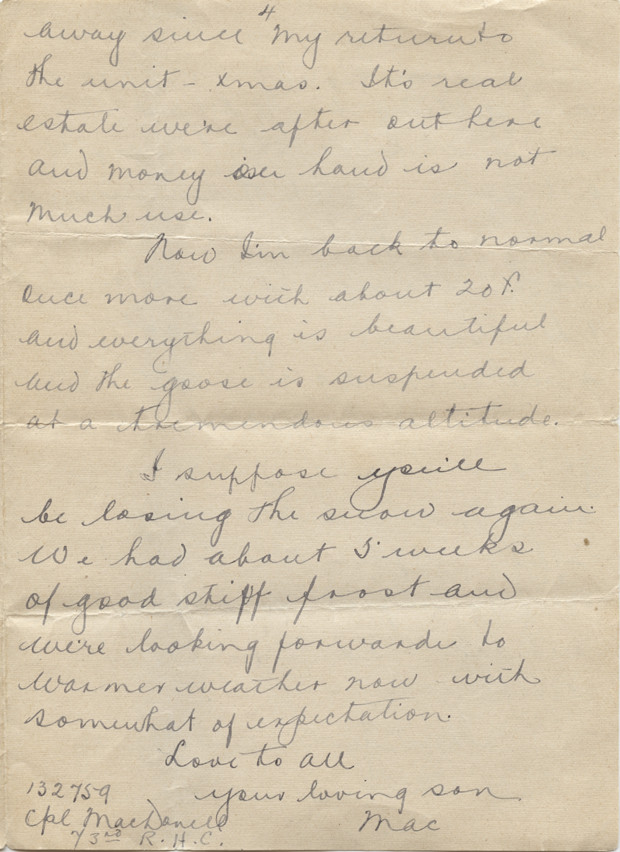 4
away since my return to
the unit - xmas. It's real
estate we're after out here
and money in hand is not
much use.
Now I'm back to normal
once more with about 20 f.
and everything is beautiful
and the goose is suspended
at a tremendous altitude.
I suppose you'll
be losing the snow again.
We had about 5 weeks
of good stiff frost and
we're looking forward to
warmer weather now with
somewhat of expectation.
Love to all
your loving son
Mac
132759
Cpl MacDonell
73rd R.H.C.